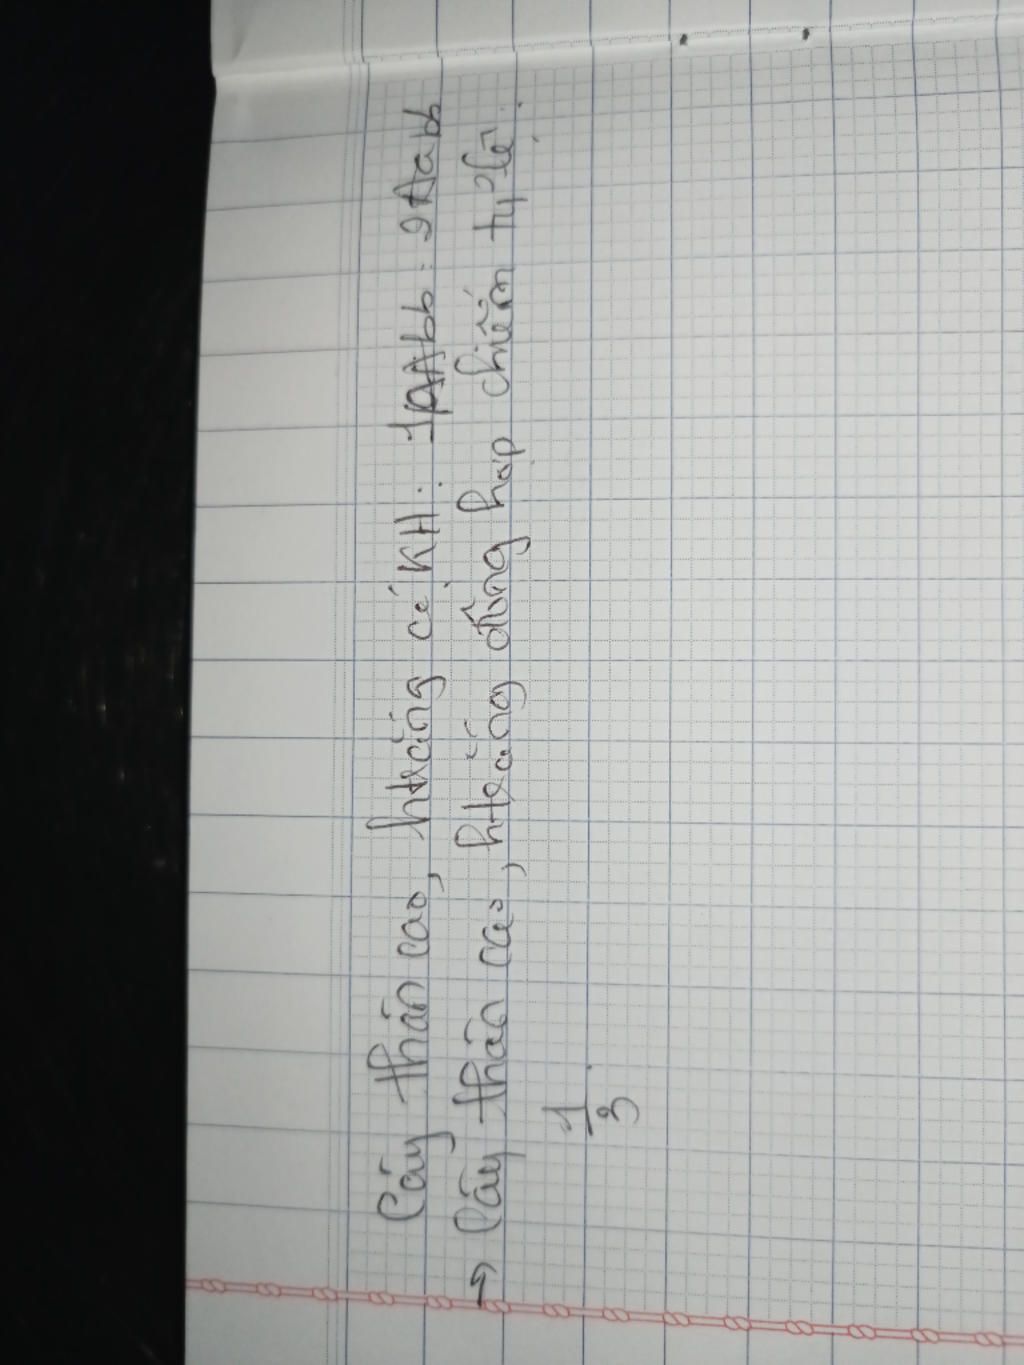 Cây thân cao, h trắng có KH: 1AAbb : 2Aabb
→ Cây thân cao, h trắng đồng hợp chiếm tỷ lệ :
1/3